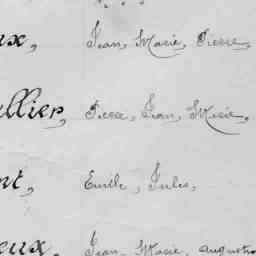 ux, Jean, Marie, Pierre,
llier, Pierre, Jean, Marie,
nt, Emile, Jules,
eux, Jean, Marie, Augustin